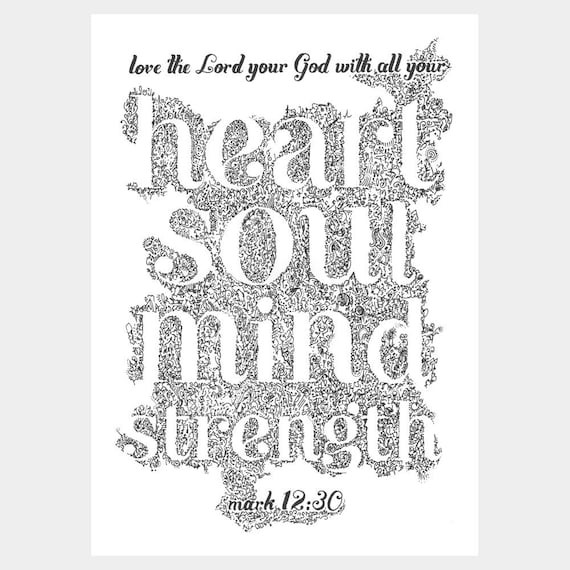 love the Lord your God with all your
heart
soul
mind
strength
mark 12:30